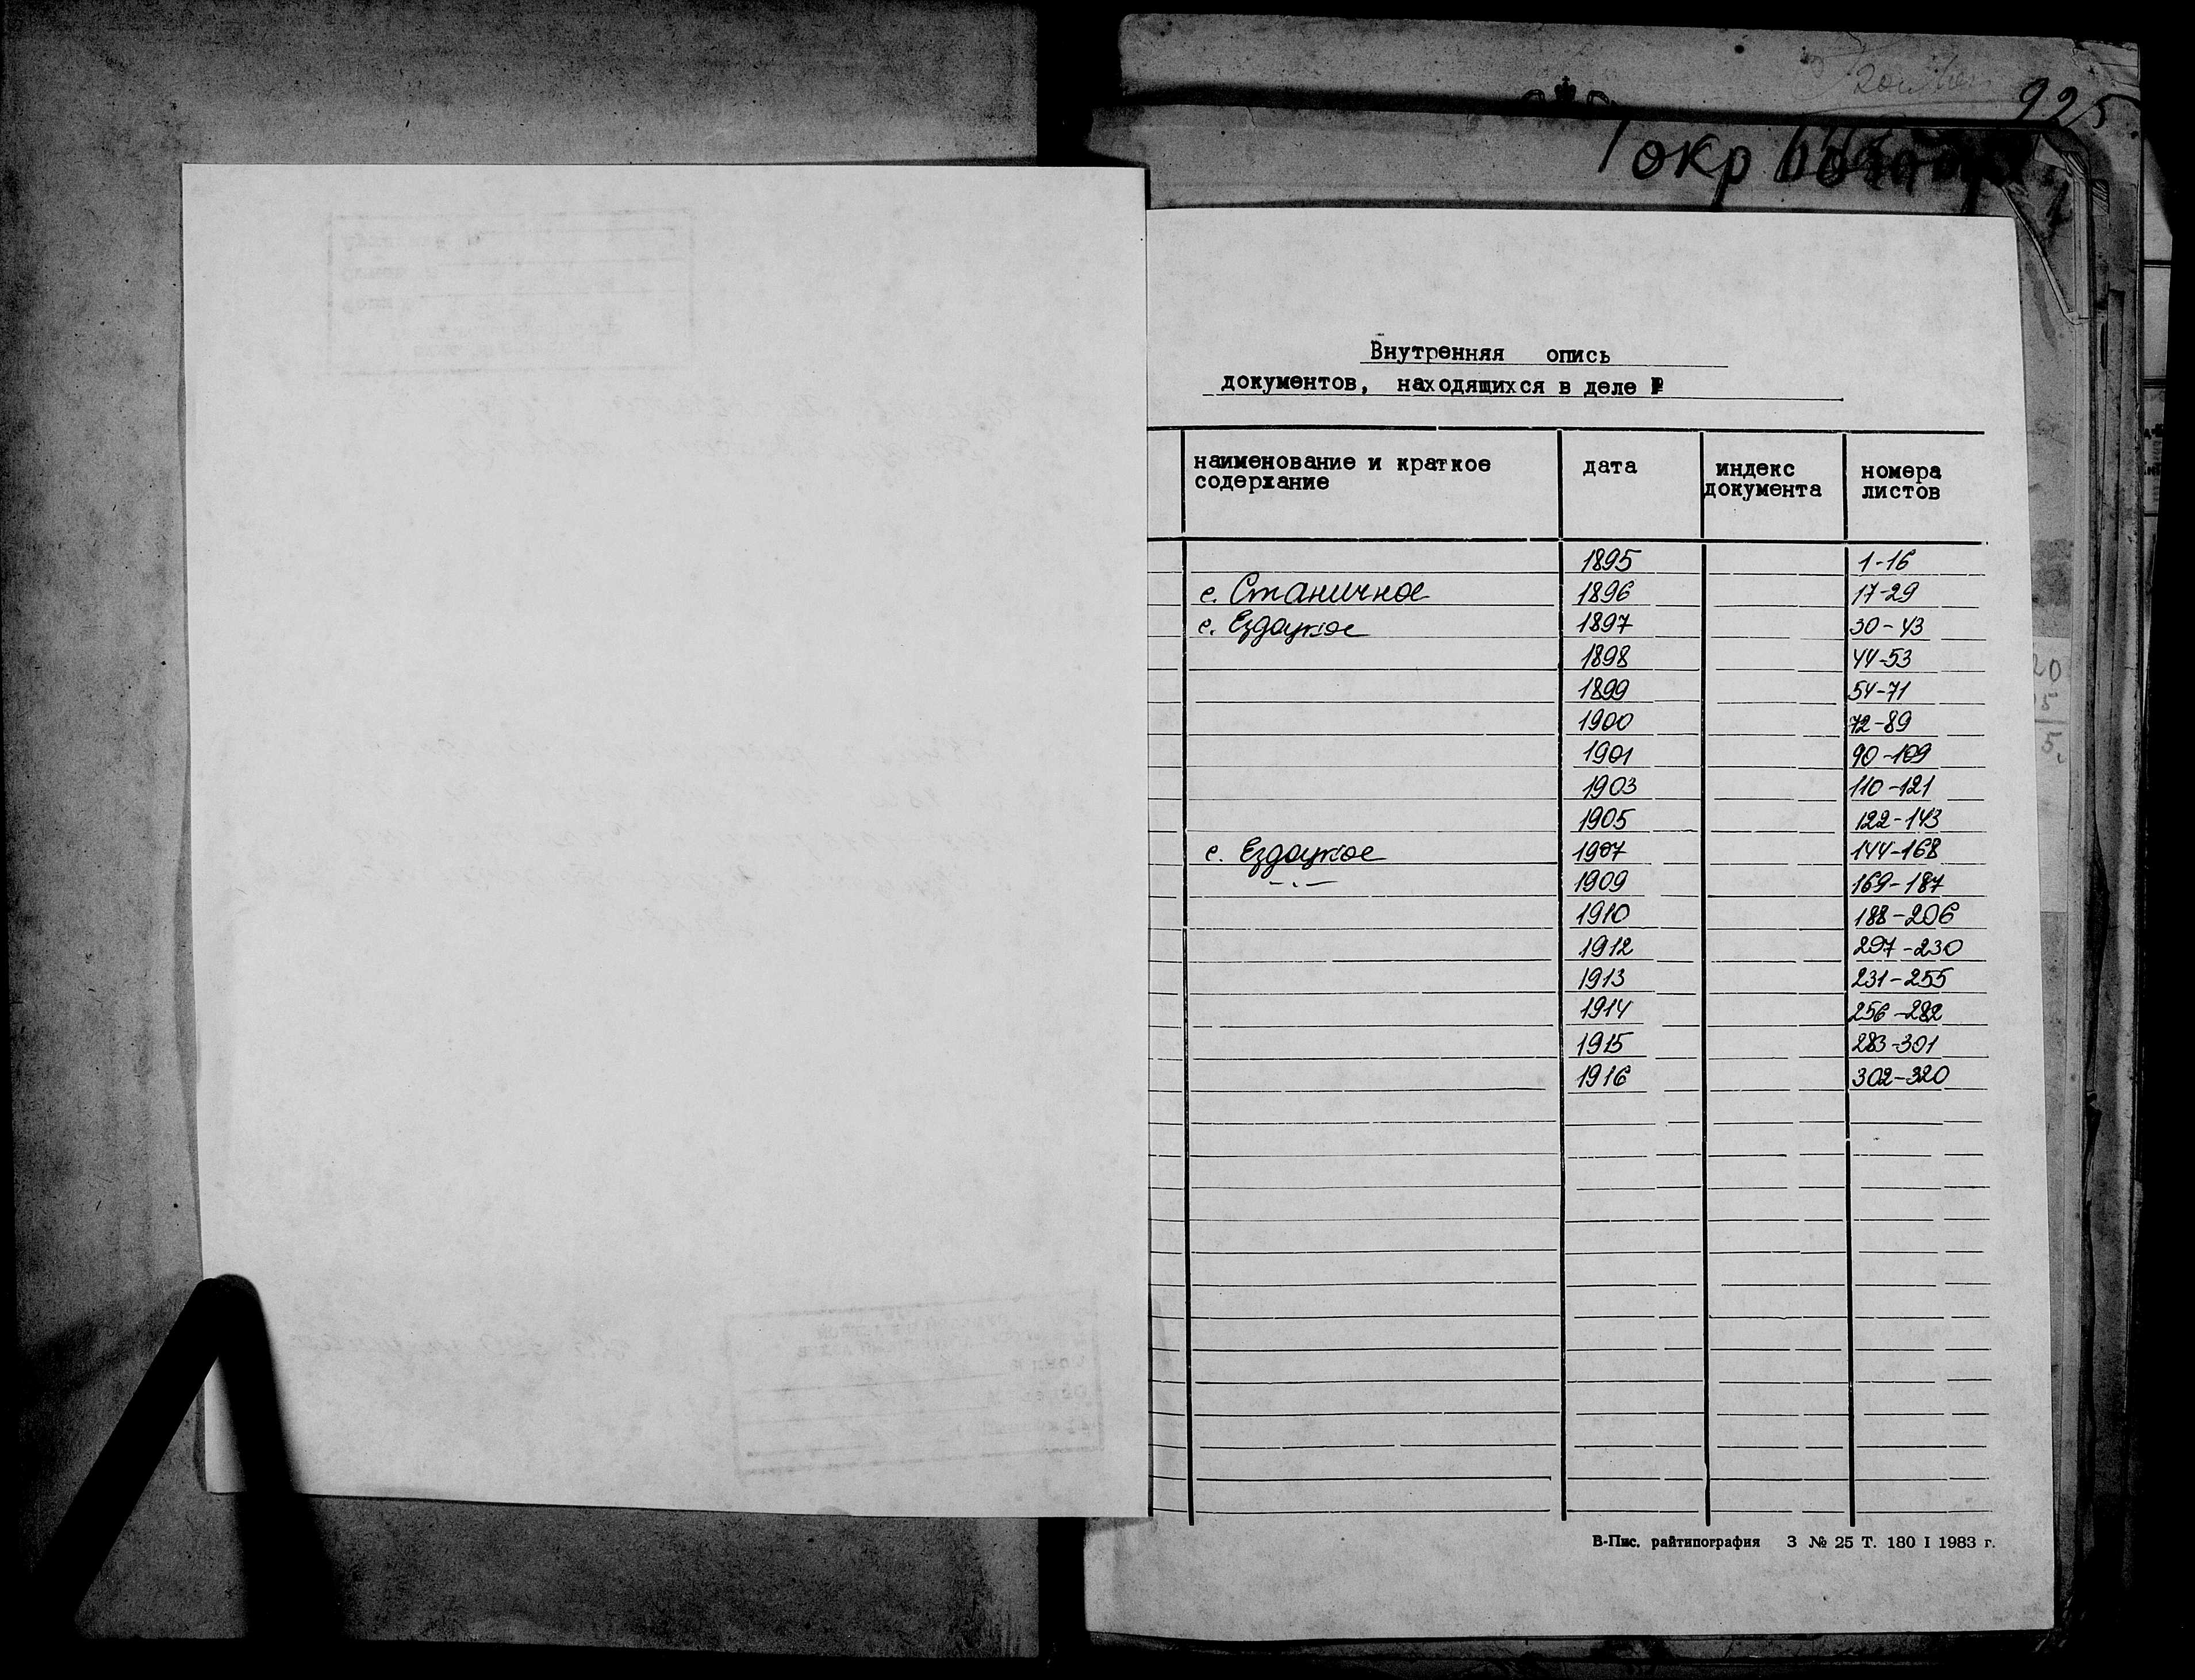 925
1 окр
Внутренняя опись
документов, находящихся в деле №
наименование и краткое содержание дата индекс документа номера листов
1895 1-16
с. Станичное 1896 17-29
с. Ездоцкое 1897 30-43
1898 44-53
1899 54-71
1900 72-89
1901 90-109
1903 110-121
1905 122-143
с. Ездоцкое 1907 144-168
-"- 1909 169-187
1910 188-206
1912 207-230
1913 231-255
1914 256-282
1915 283-301
1916 302-320
В-Пис. райтипография З № 25 Т. 180 I 1983 г.